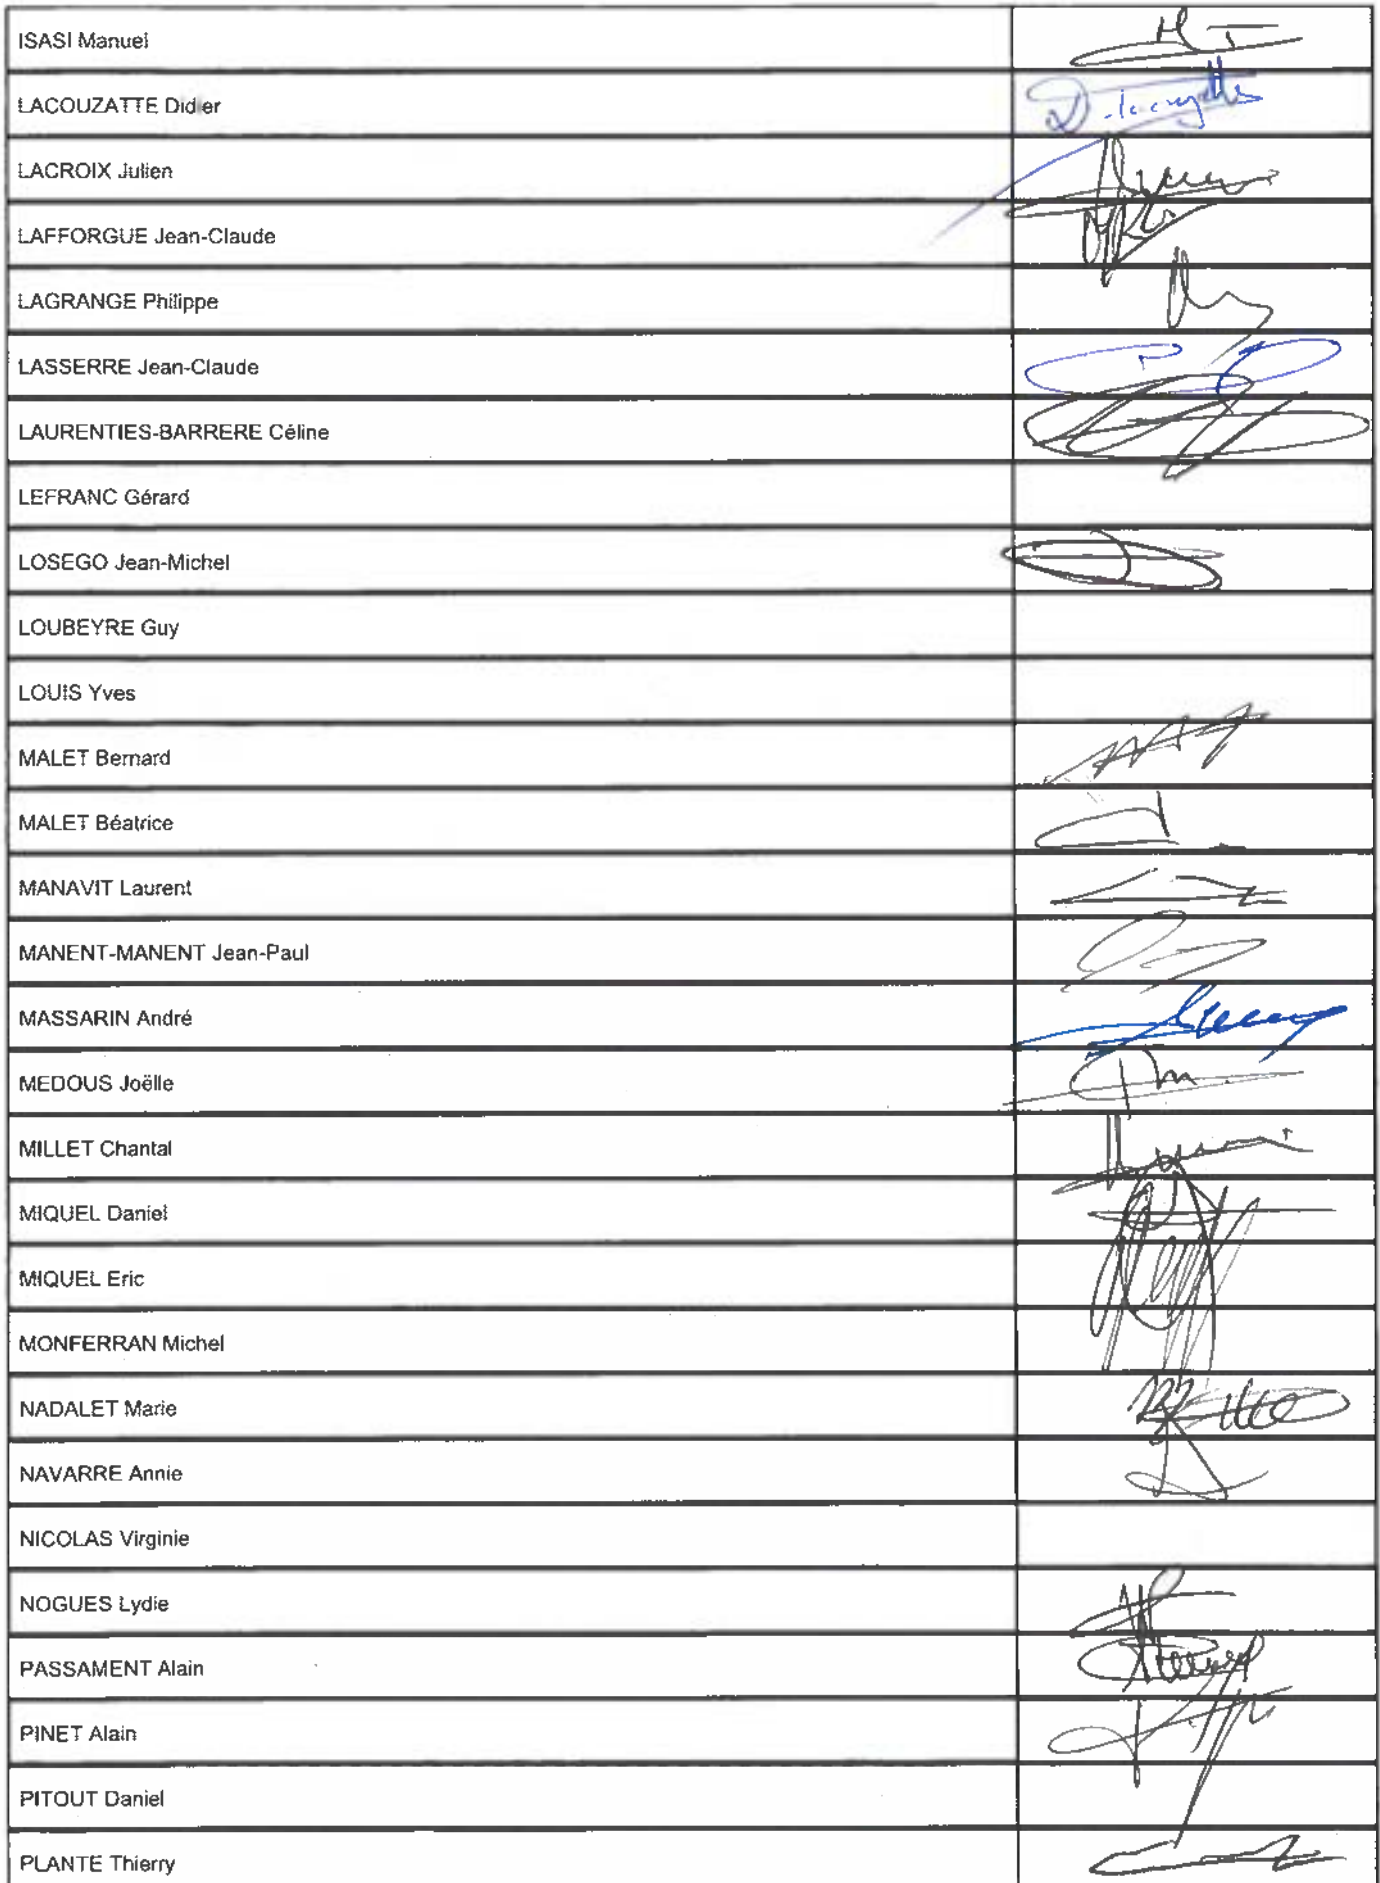 ISASI Manuel
LACOUZATTE Didier
LACROIX Julien
LAFFORGUE Jean-Claude
LAGRANGE Philippe
LASSERRE Jean-Claude
LAURENTIES-BARRERE Céline
LEFRANC Gérard
LOSEGO Jean-Michel
LOUBEYRE Guy
LOUIS Yves
MALET Bernard
MALET Béatrice
MANAVIT Laurent
MANENT-MANENT Jean-Paul
MASSARIN André
MEDOUS Joëlle
MILLET Chantal
MIQUEL Daniel
MIQUEL Eric
MONFERRAN Michel
NADALET Marie
NAVARRE Annie
NICOLAS Virginie
NOGUES Lydie
PASSAMENT Alain
PINET Alain
PITOUT Daniel
PLANTE Thierry